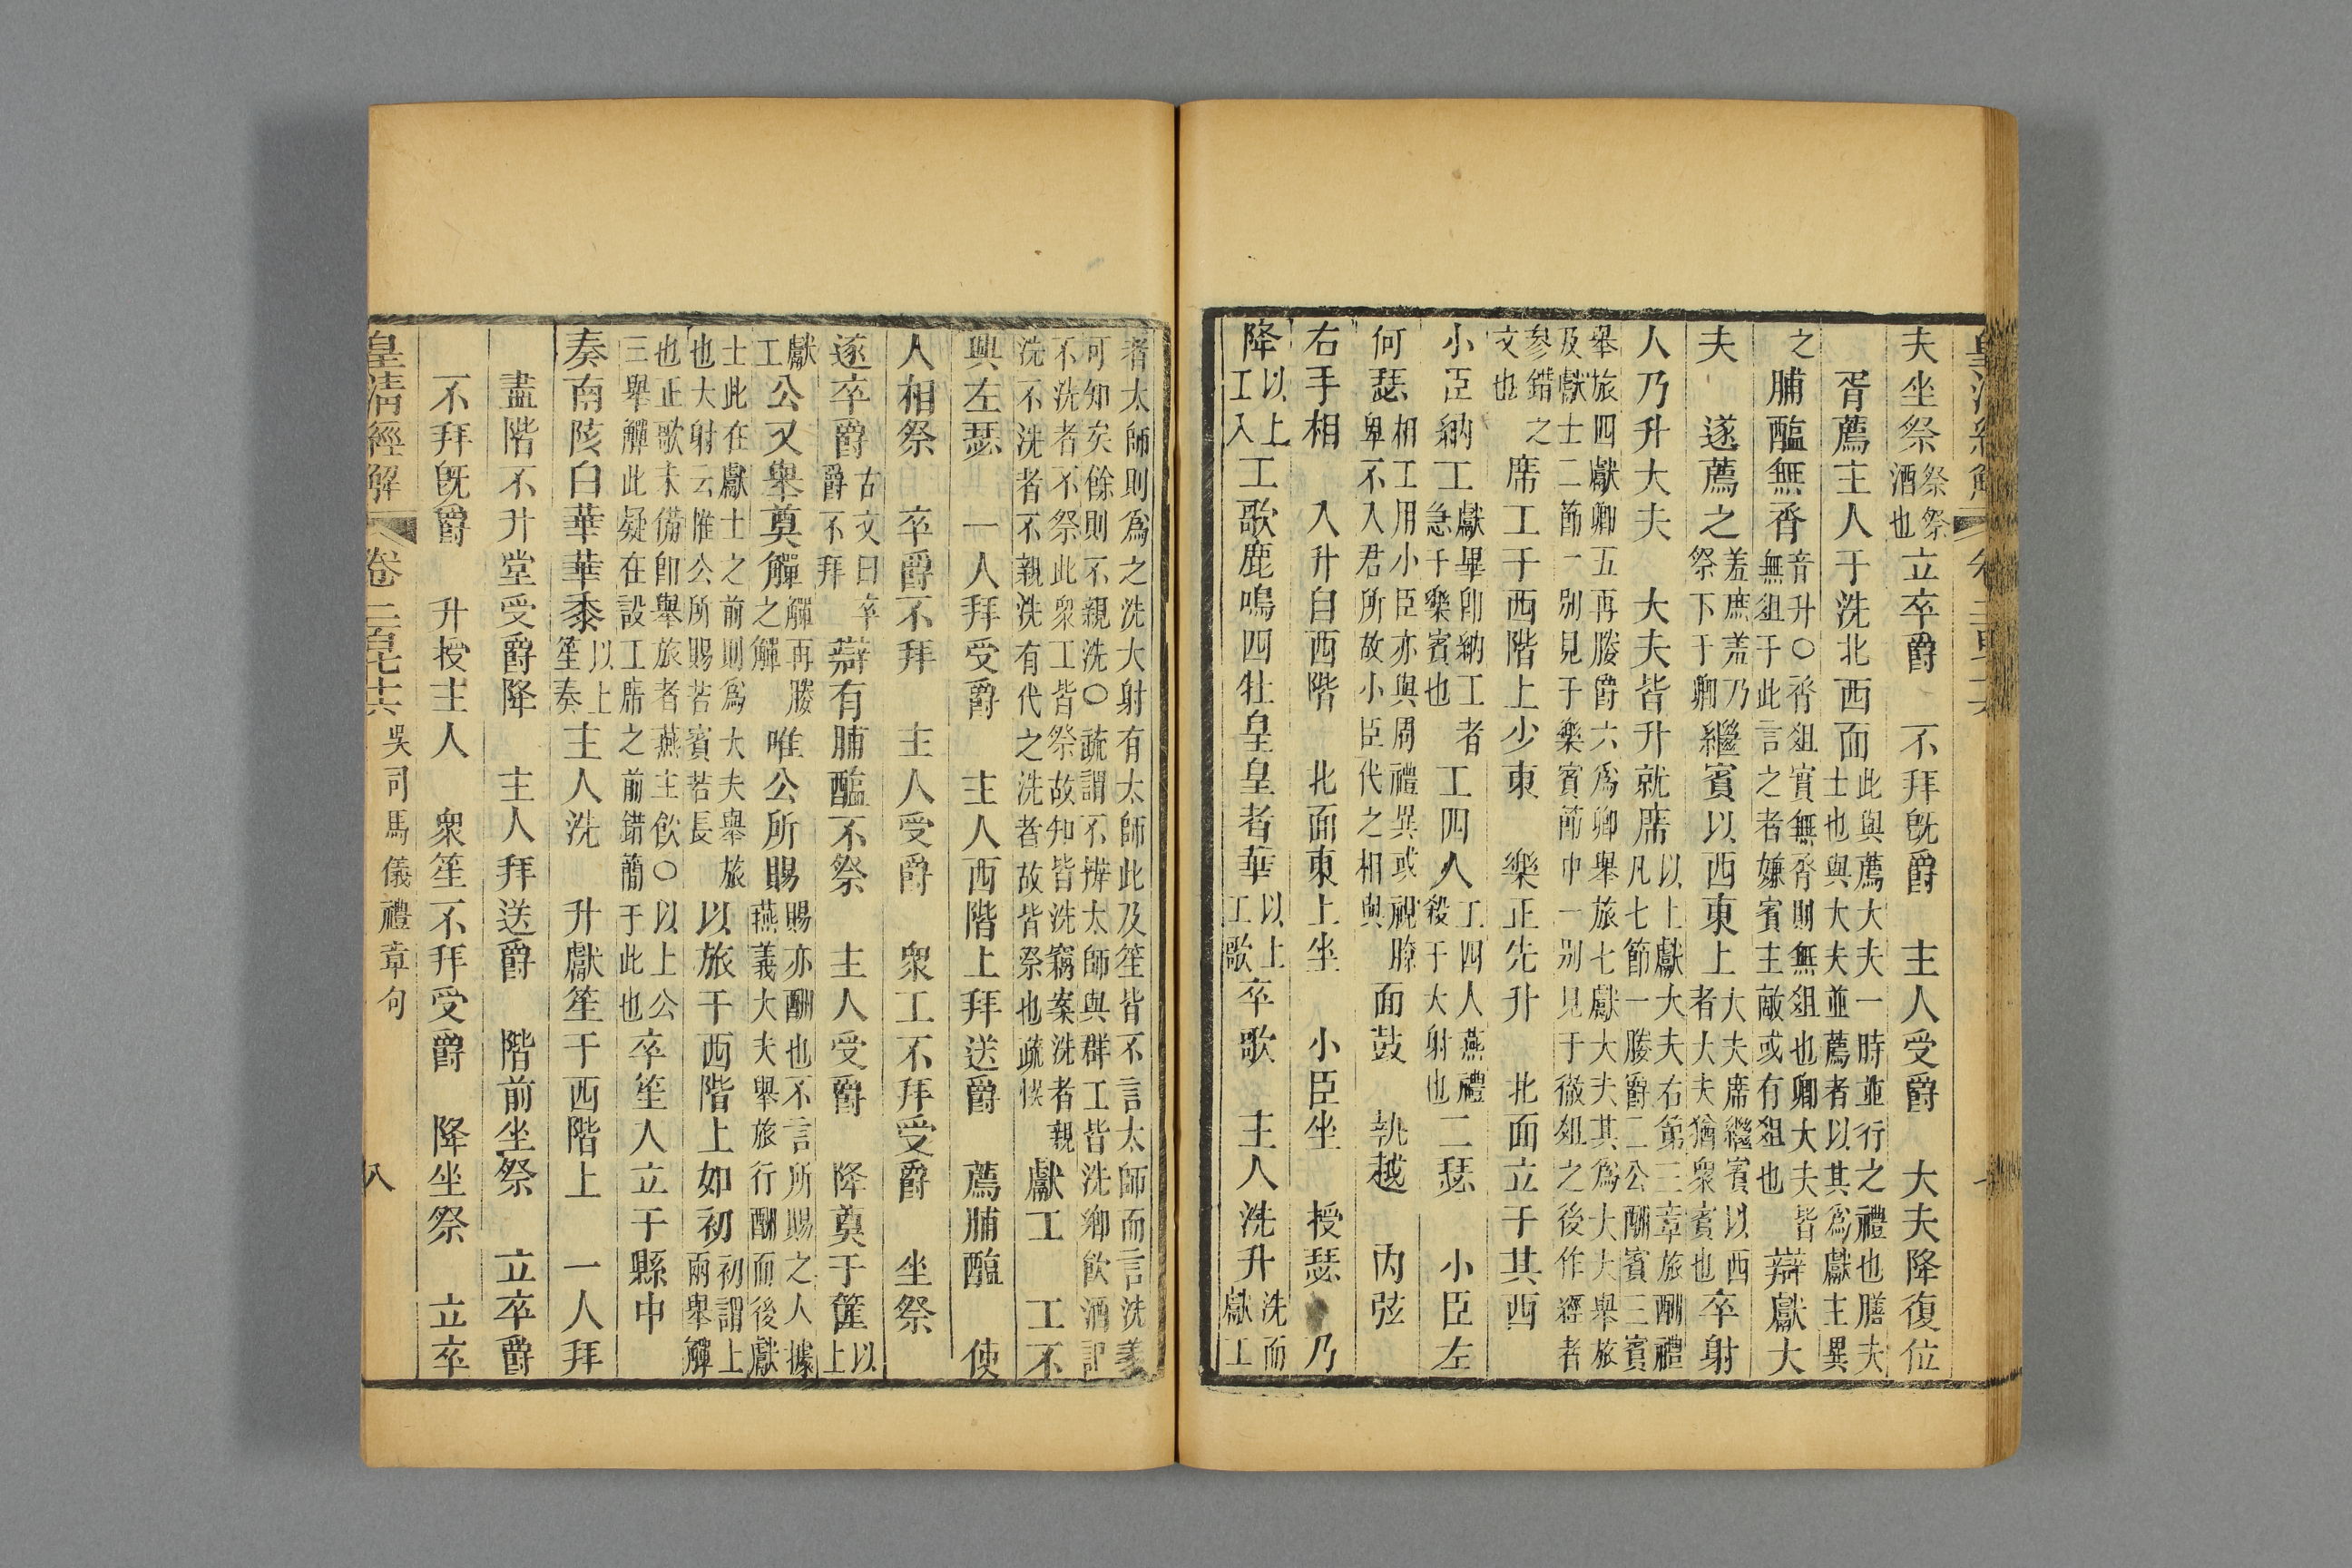 夫坐祭祭祭酒也立卒爵　不拜旣爵　主人受爵　大夫降復位
胥薦主人于洗北西面此與薦大夫一時並行之禮也膳夫士也與大夫並薦者以其爲獻主異
之脯醢無脀音升○脀俎實無脀則無俎也卿大夫皆無俎于此言之者嫌賓主敵或有俎也辯獻大
夫　遂薦之羞庶羞乃祭下于卿繼賓以西東上大夫席繼賓以西者大夫猶衆賓也卒射
人乃升大夫　大夫皆升就席以上獻大夫右第三章旅酬禮凡七節一媵爵二公酬賓三賓
舉旅四獻卿五再媵爵六爲卿舉旅七獻大夫其爲大夫舉旅及獻士二節一別見于樂賓節中一別見于徹俎之後作經者
參錯之文也席工于西階上少東　樂正先升　北面立于其西
小臣納工獻畢卽納工者急于樂賓也工四人工四人燕禮殺于大射也二瑟　小臣左
何瑟相工用小臣亦與周禮異或視瞭卑不入君所故小臣代之相與面鼓　執越　內弦
右手相　入升自西階　北面東上坐　小臣坐　授瑟　乃
降以上工入工歌鹿鳴四牡皇皇者華以上工歌卒歌　主人洗升洗而獻工
者太師則爲之洗大射有太師此及笙皆不言太師而言洗義可知矣餘則不親洗○疏謂不辨太師與群工皆洗鄉飲酒記
不洗者不祭此衆工皆祭故知皆洗竊案洗者親洗不洗者不親洗有代之洗者故皆祭也疏悞獻工　工不
興左瑟　一人拜受爵　主人西階上拜送爵　薦脯醢　使
人相祭　卒爵不拜　主人受爵　衆工不拜受爵　坐祭
遂卒爵古文曰卒爵不拜辯有脯醢不祭　主人受爵　降奠于篚以上
獻工公又舉奠觶觶再媵之觶唯公所賜賜亦酬也不言所賜之人據燕義大夫舉旅行酬而後獻
士此在獻士之前則爲大夫舉旅也大射云惟公所賜若賓若長以旅于西階上如初初謂上兩舉觶
也正歌未備卽舉旅者燕主飲○三舉觶此疑在設工席之前錯簡于此也以上公卒笙人立于縣中
奏南陔白華華黍以上笙奏主人洗　升獻笙于西階上　一人拜
盡階不升堂受爵降　主人拜送爵　階前坐祭　立卒爵
不拜旣爵　升授主人　衆笙不拜受爵　降坐祭　立卒
皇清經解　卷二百七十六吳司馬儀禮章句　八